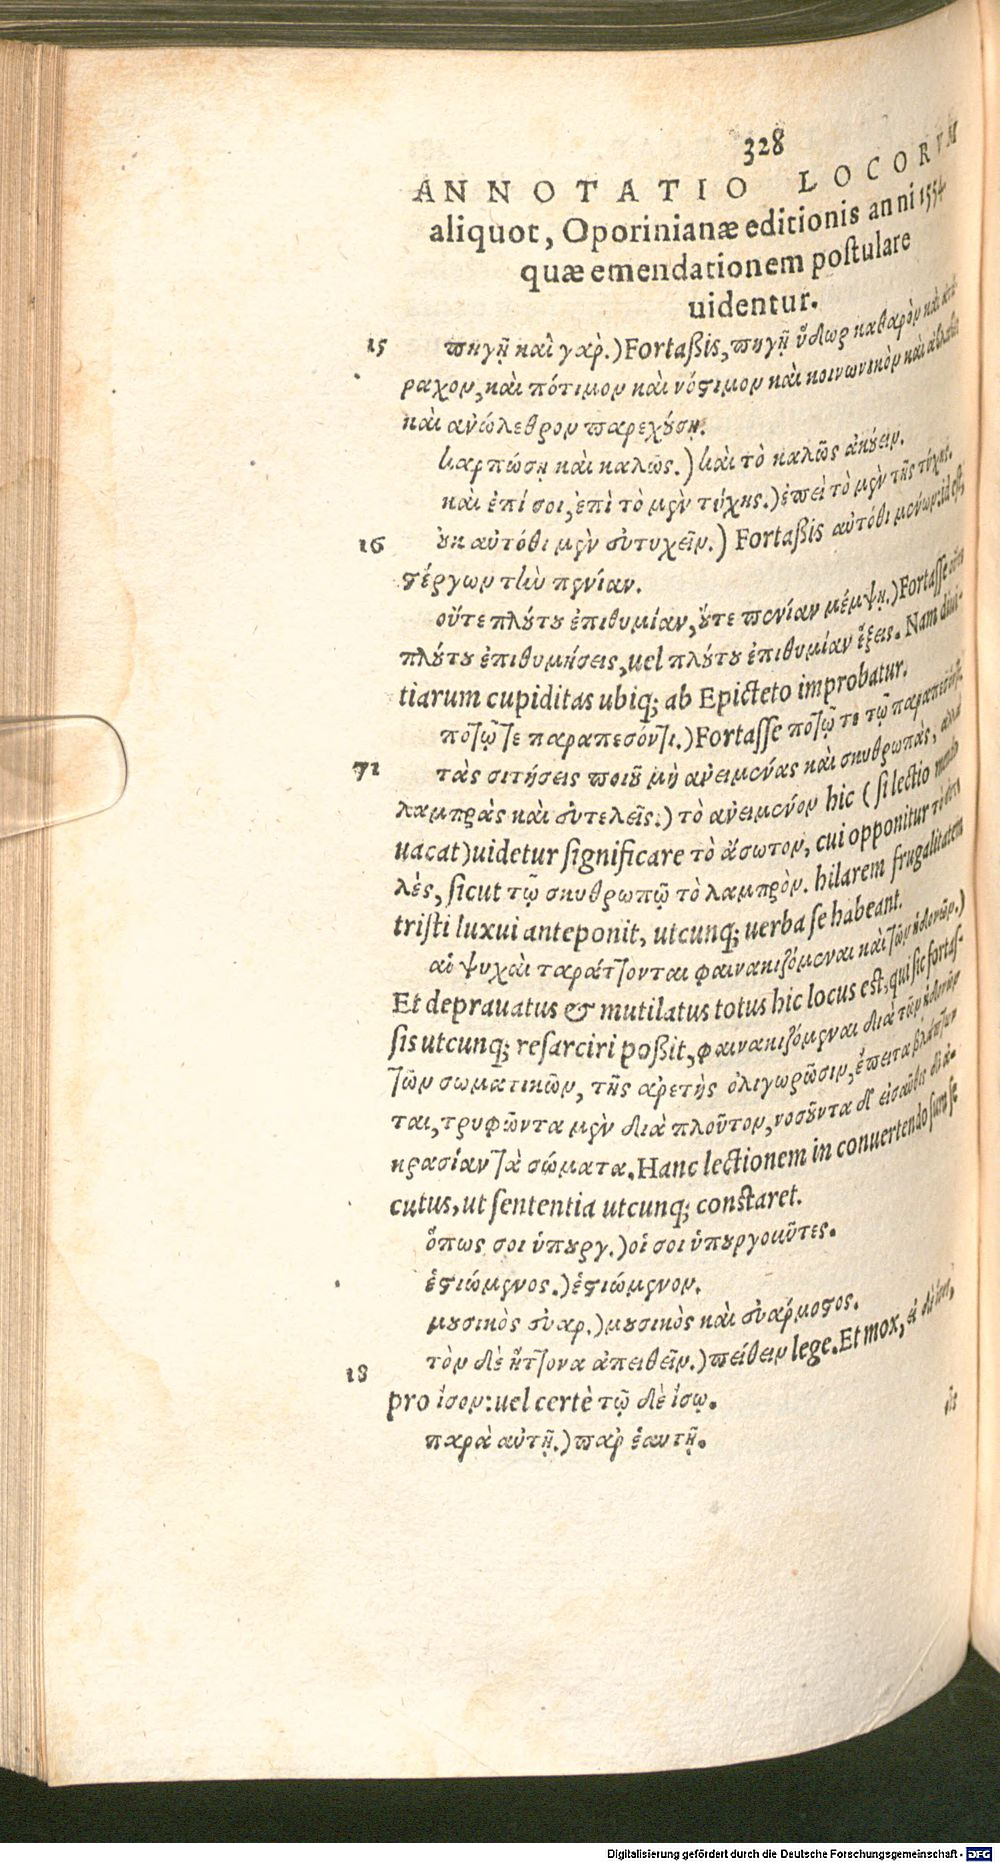 328
ANNOTATIO LOCORVM
aliquot, Oporinianæ editionis anni 1554.
quæ emendationem postulare
uidentur.
15 πηγῇ καὶ γαρ.) Fortaßis, πηγῇ ὕδωρ καθαρὸν καὶ
ραχον, καὶ πότιμον καὶ νόστιμον καὶ κοινωνικὸν καὶ
καὶ ανώλεθρον παρεχούσῃ.
καρπώσῃ καὶ καλῶς.) καὶ τὸ καλῶς ἀκούειν.
καὶ ἐπί σοι, ἐπὶ τὸ μὲν τύχης.) ἐπεὶ τὸ μὲν τῆς τύχης.
16 οὐκ αὐτόθι μὲν εὐτυχεῖν.) Fortaßis αὐτόθι μένων: id est,
στέργων τὴν πενίαν.
οὔτε πλούτου ἐπιθυμίαν, οὔτε πενίαν μέμψῃ.) Fortasse
πλούτου ἐπιθυμήσεις, uel πλούτου ἐπιθυμίαν ἕξεις. Nam diui-
tiarum cupiditas ubiq; ab Epicteto improbatur.
ποτῷ τε παραπεσόντι.) Fortasse ποτῷ τε τῷ
71 τὰς σιτήσεις ποιοῦ μὴ ανειμένας καὶ σκυθρωπὰς, αλλὰ
λαμπρὰς καὶ εὐτελεῖς.) τὸ ανειμένον hic (si lectio mendo
uacat) uidetur significare τὸ ἄσωτον, cui opponitur τὸ
λὲς, sicut τῷ σκυθρωπῷ τὸ λαμπρὸν. hilarem frugalitatem
tristi luxui anteponit, utcunq; uerba se habeant.
αἱ ψυχαὶ ταράττονται φαινακιζόμεναι καὶ τῶν ἡδονῶν.)
Et deprauatus & mutilatus totus hic locus est, qui sic fortas-
sis utcunq; resarciri poßit, φαινακιζόμεναι διὰ τῶν ἡδονῶν
τῶν σωματικῶν, τῆς αρετῆς ὀλιγωρῶσιν, ἔπειτα
ται, τρυφῶντα μὲν διὰ πλοῦτον, νοσοῦντα δ' εἰσαῦθις δι' ἀ-
κρασίαν τὰ σώματα. Hanc lectionem in conuertendo sum se
cutus, ut sententia utcunq; constaret.
ὅπως σοι ὑπουργ.) οἵ σοι ὑπουργοῦντες.
ἑστιώμενος.) ἑστιώμενον.
μουσικὸς εὐαρ.) μουσικὸς καὶ εὐάρμοστος.
18 τὸν δὲ ἥττονα ἀπειθεῖν.) πείθειν lege. Et mox,
pro ἴσον: uel certè τῷ δὲ ἴσῳ.
παρὰ αὐτῇ.) παρ ἑαυτῇ.
Digitalisierung gefördert durch die Deutsche Forschungsgemeinschaft - DFG